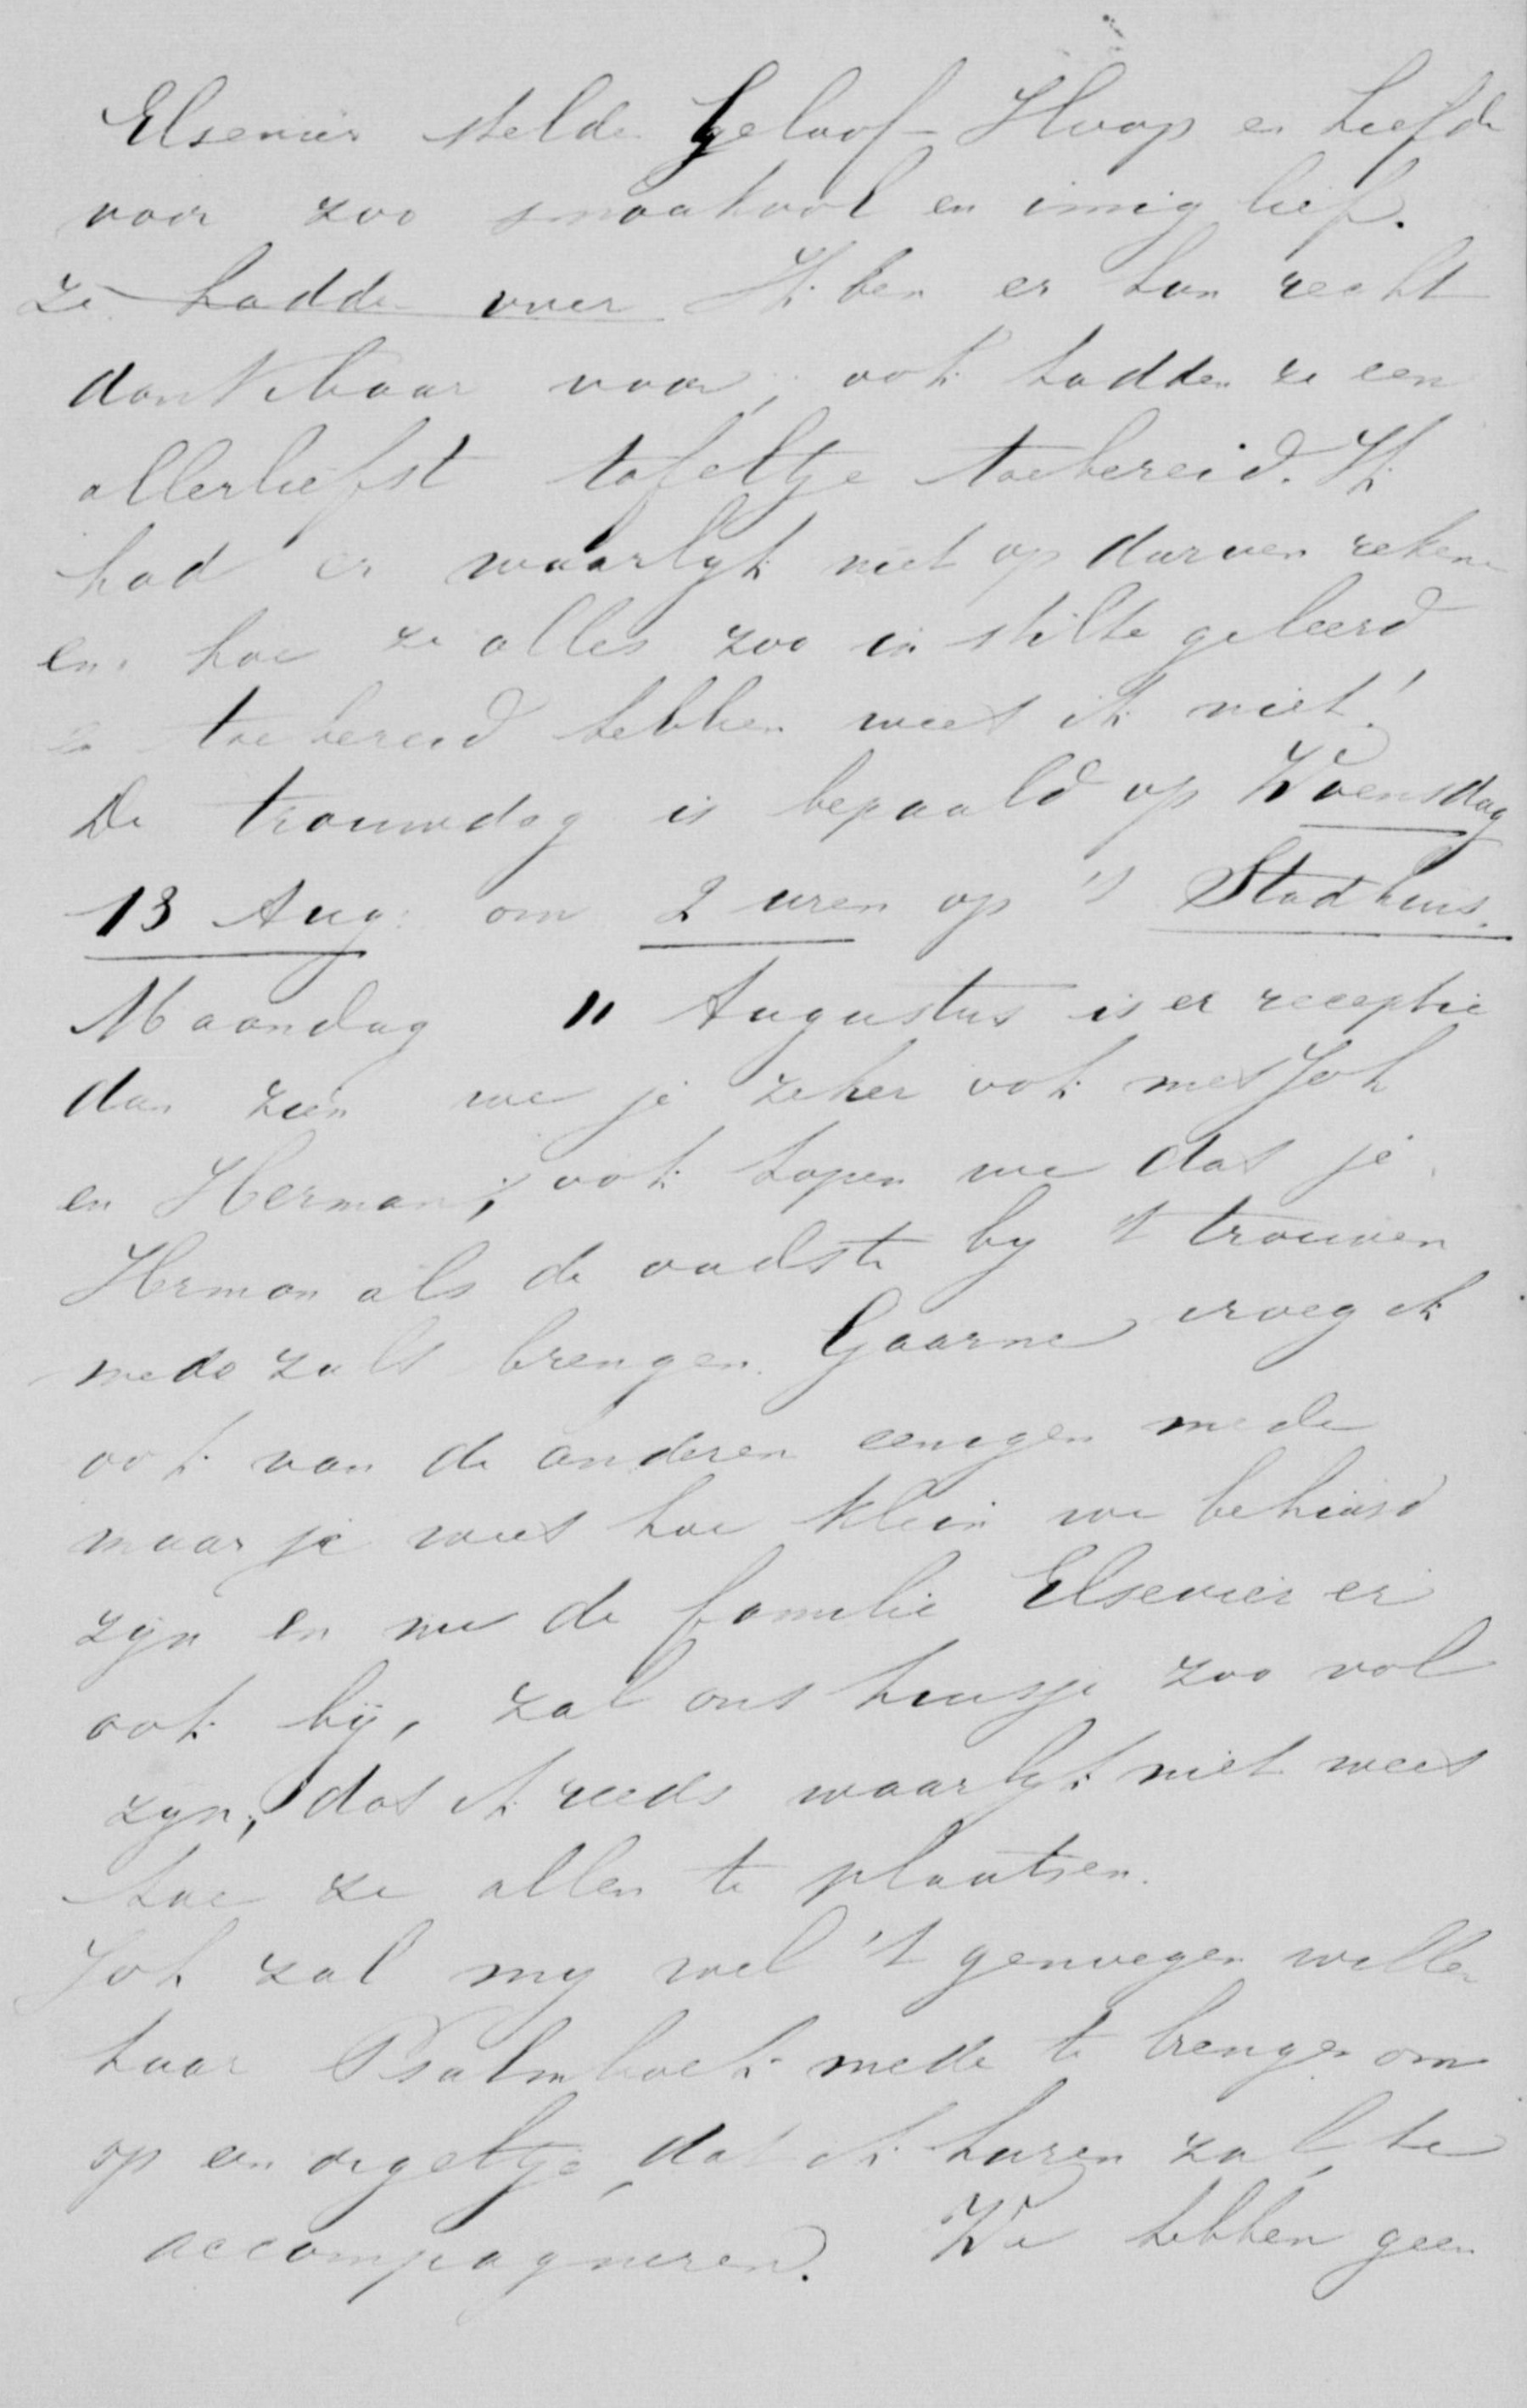 Elsevier stelde Geloof - Hoop en Liefde
voor zoo smaakvol en innig lief.
ze hadden voor Ik ben er hun recht
dankbaar voor, ook hadden ze een
allerliefst tafeltje toebereid. Ik
had er waarlyk niet op durven rekenen
en hoe ze alles zoo in stilte geleerd
en toebereid hebben weet ik niet!
De trouwdag is bepaald op Woensdag
13 Aug: om 2 uren op 't Stadhuis.
Maandag 11 Augustus is er receptie
dan zien we je zeker ook met Joh
en Herman; ook hopen we dat je
Herman als de oudste by 't trouwen
mede zult brengen. Gaarne vroeg ik
ook van de anderen eenigen mede
maar je weet hoe klein we behuisd
zijn en nu de familie Elsevier er
ook bij, zal ons huisje zoo vol
zyn, dat ik reeds waarlyk niet weet
hoe ze allen te plaatsen.
Joh zal my wel 't genoegen willen
haar Psalmboek mede te brengen om
op een orgeltje, dat ik huren zal, te
accompagneren. We hebben geen